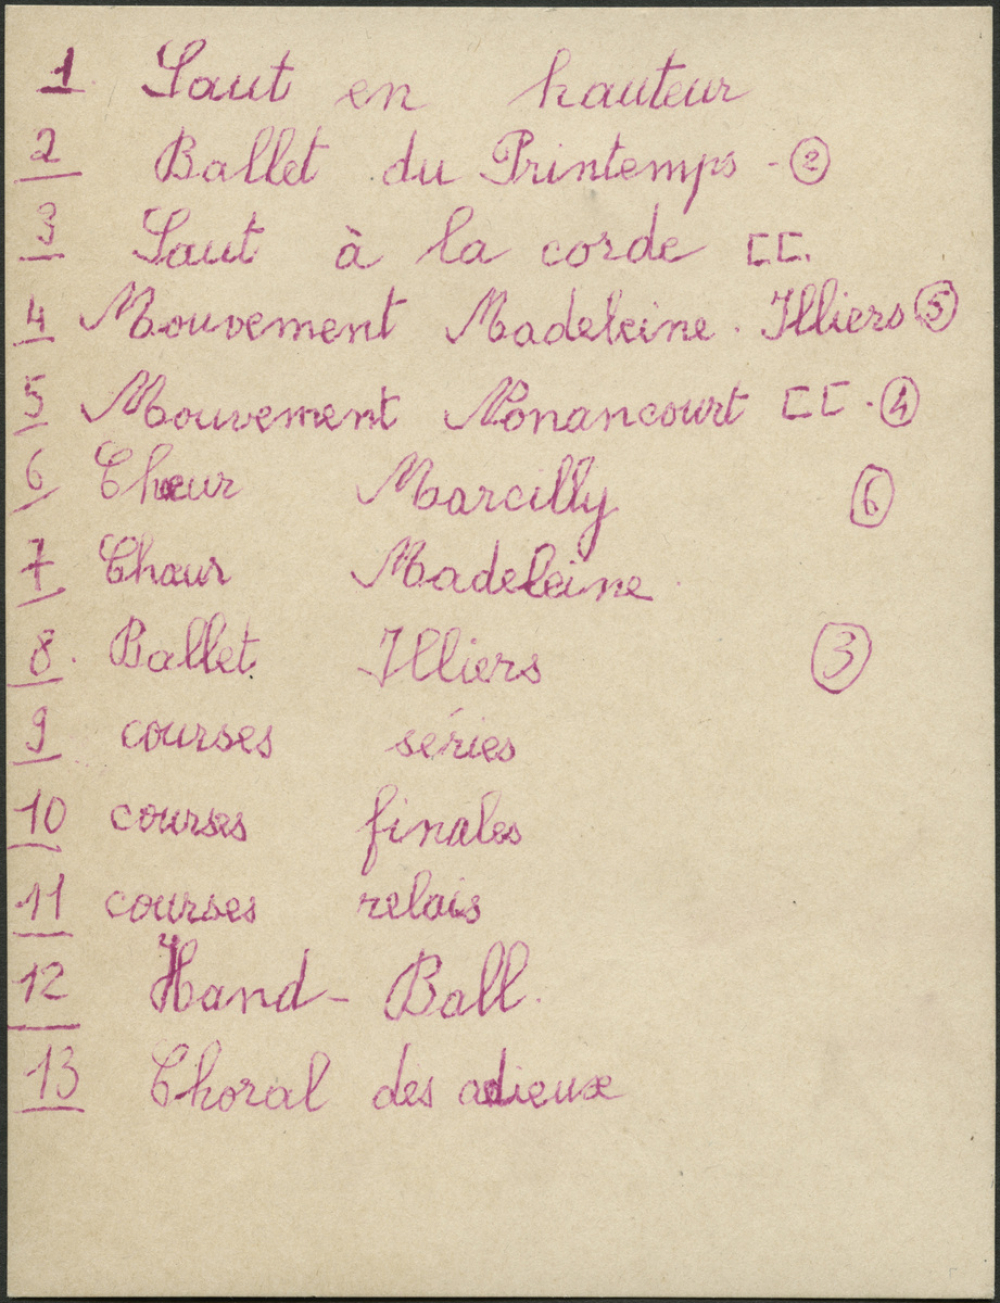 1. Saut en hauteur
2 Ballet du Printemps - ②
3 Saut à la corde CC.
4 Mouvement Madeleine. Illiers ⑤
5 Mouvement Nonancourt CC. ④
6 Chœur Marcilly ⑥
7 Chœur Madeleine.
8. Ballet Illiers ③
9 courses séries
10 courses finales
11 courses relais
12 Hand-Ball.
13 Choral des adieux